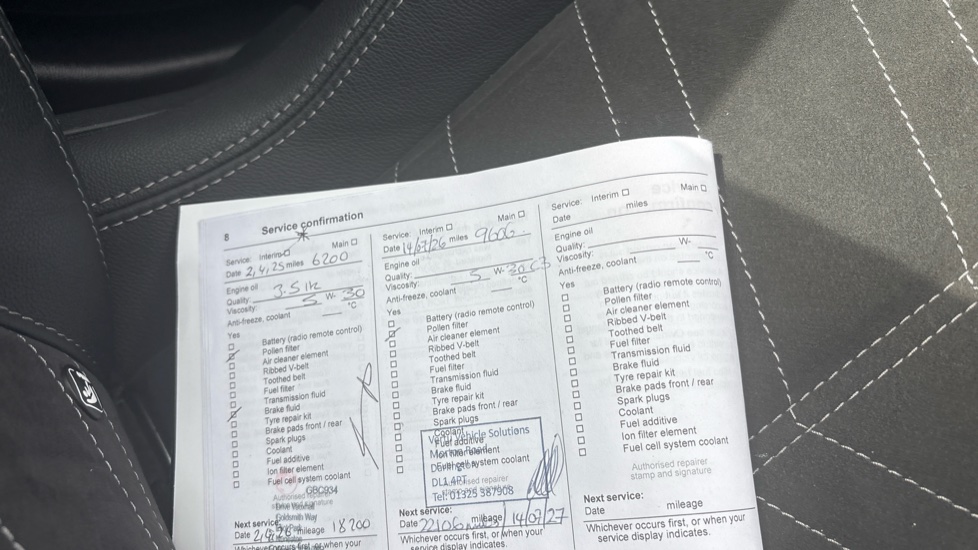 8 Service confirmation
Service: Interim Main
Date 2,4,25 miles 6200
Engine oil
Quality: 3.5 ltr
Viscosity: 5 W- 30
Anti-freeze, coolant °C
Yes
Battery (radio remote control)
Pollen filter
Air cleaner element
Ribbed V-belt
Toothed belt
Fuel filter
Transmission fluid
Brake fluid
Tyre repair kit
Brake pads front / rear
Spark plugs
Coolant
Fuel additive
Ion filter element
Fuel cell system coolant
GBC934
Authorised repairer
stamp and signature
Drive Vauxhall
Goldsmith Way
Next service:
Date 2,4,26 mileage 18200
Whichever occurs first, or when your
Service: Interim Main
Date 14/07/26 miles 9606
Engine oil
Quality:
Viscosity: 5 W- 30 C3
Anti-freeze, coolant °C
Yes
Battery (radio remote control)
Pollen filter
Air cleaner element
Ribbed V-belt
Toothed belt
Fuel filter
Transmission fluid
Brake fluid
Tyre repair kit
Brake pads front / rear
Spark plugs
Coolant
Fuel additive
Ion filter element
Fuel cell system coolant
Vehicle Solutions
DL1 4PT
Tel: 01325 387908
Authorised repairer
stamp and signature
Next service:
Date 22106 miles mileage 14/07/27
Whichever occurs first, or when your
service display indicates.
Service: Interim Main
Date miles
Engine oil
Quality:
Viscosity: W-
Anti-freeze, coolant °C
Yes
Battery (radio remote control)
Pollen filter
Air cleaner element
Ribbed V-belt
Toothed belt
Fuel filter
Transmission fluid
Brake fluid
Tyre repair kit
Brake pads front / rear
Spark plugs
Coolant
Fuel additive
Ion filter element
Fuel cell system coolant
Authorised repairer
stamp and signature
Next service:
Date mileage
Whichever occurs first, or when your
service display indicates.